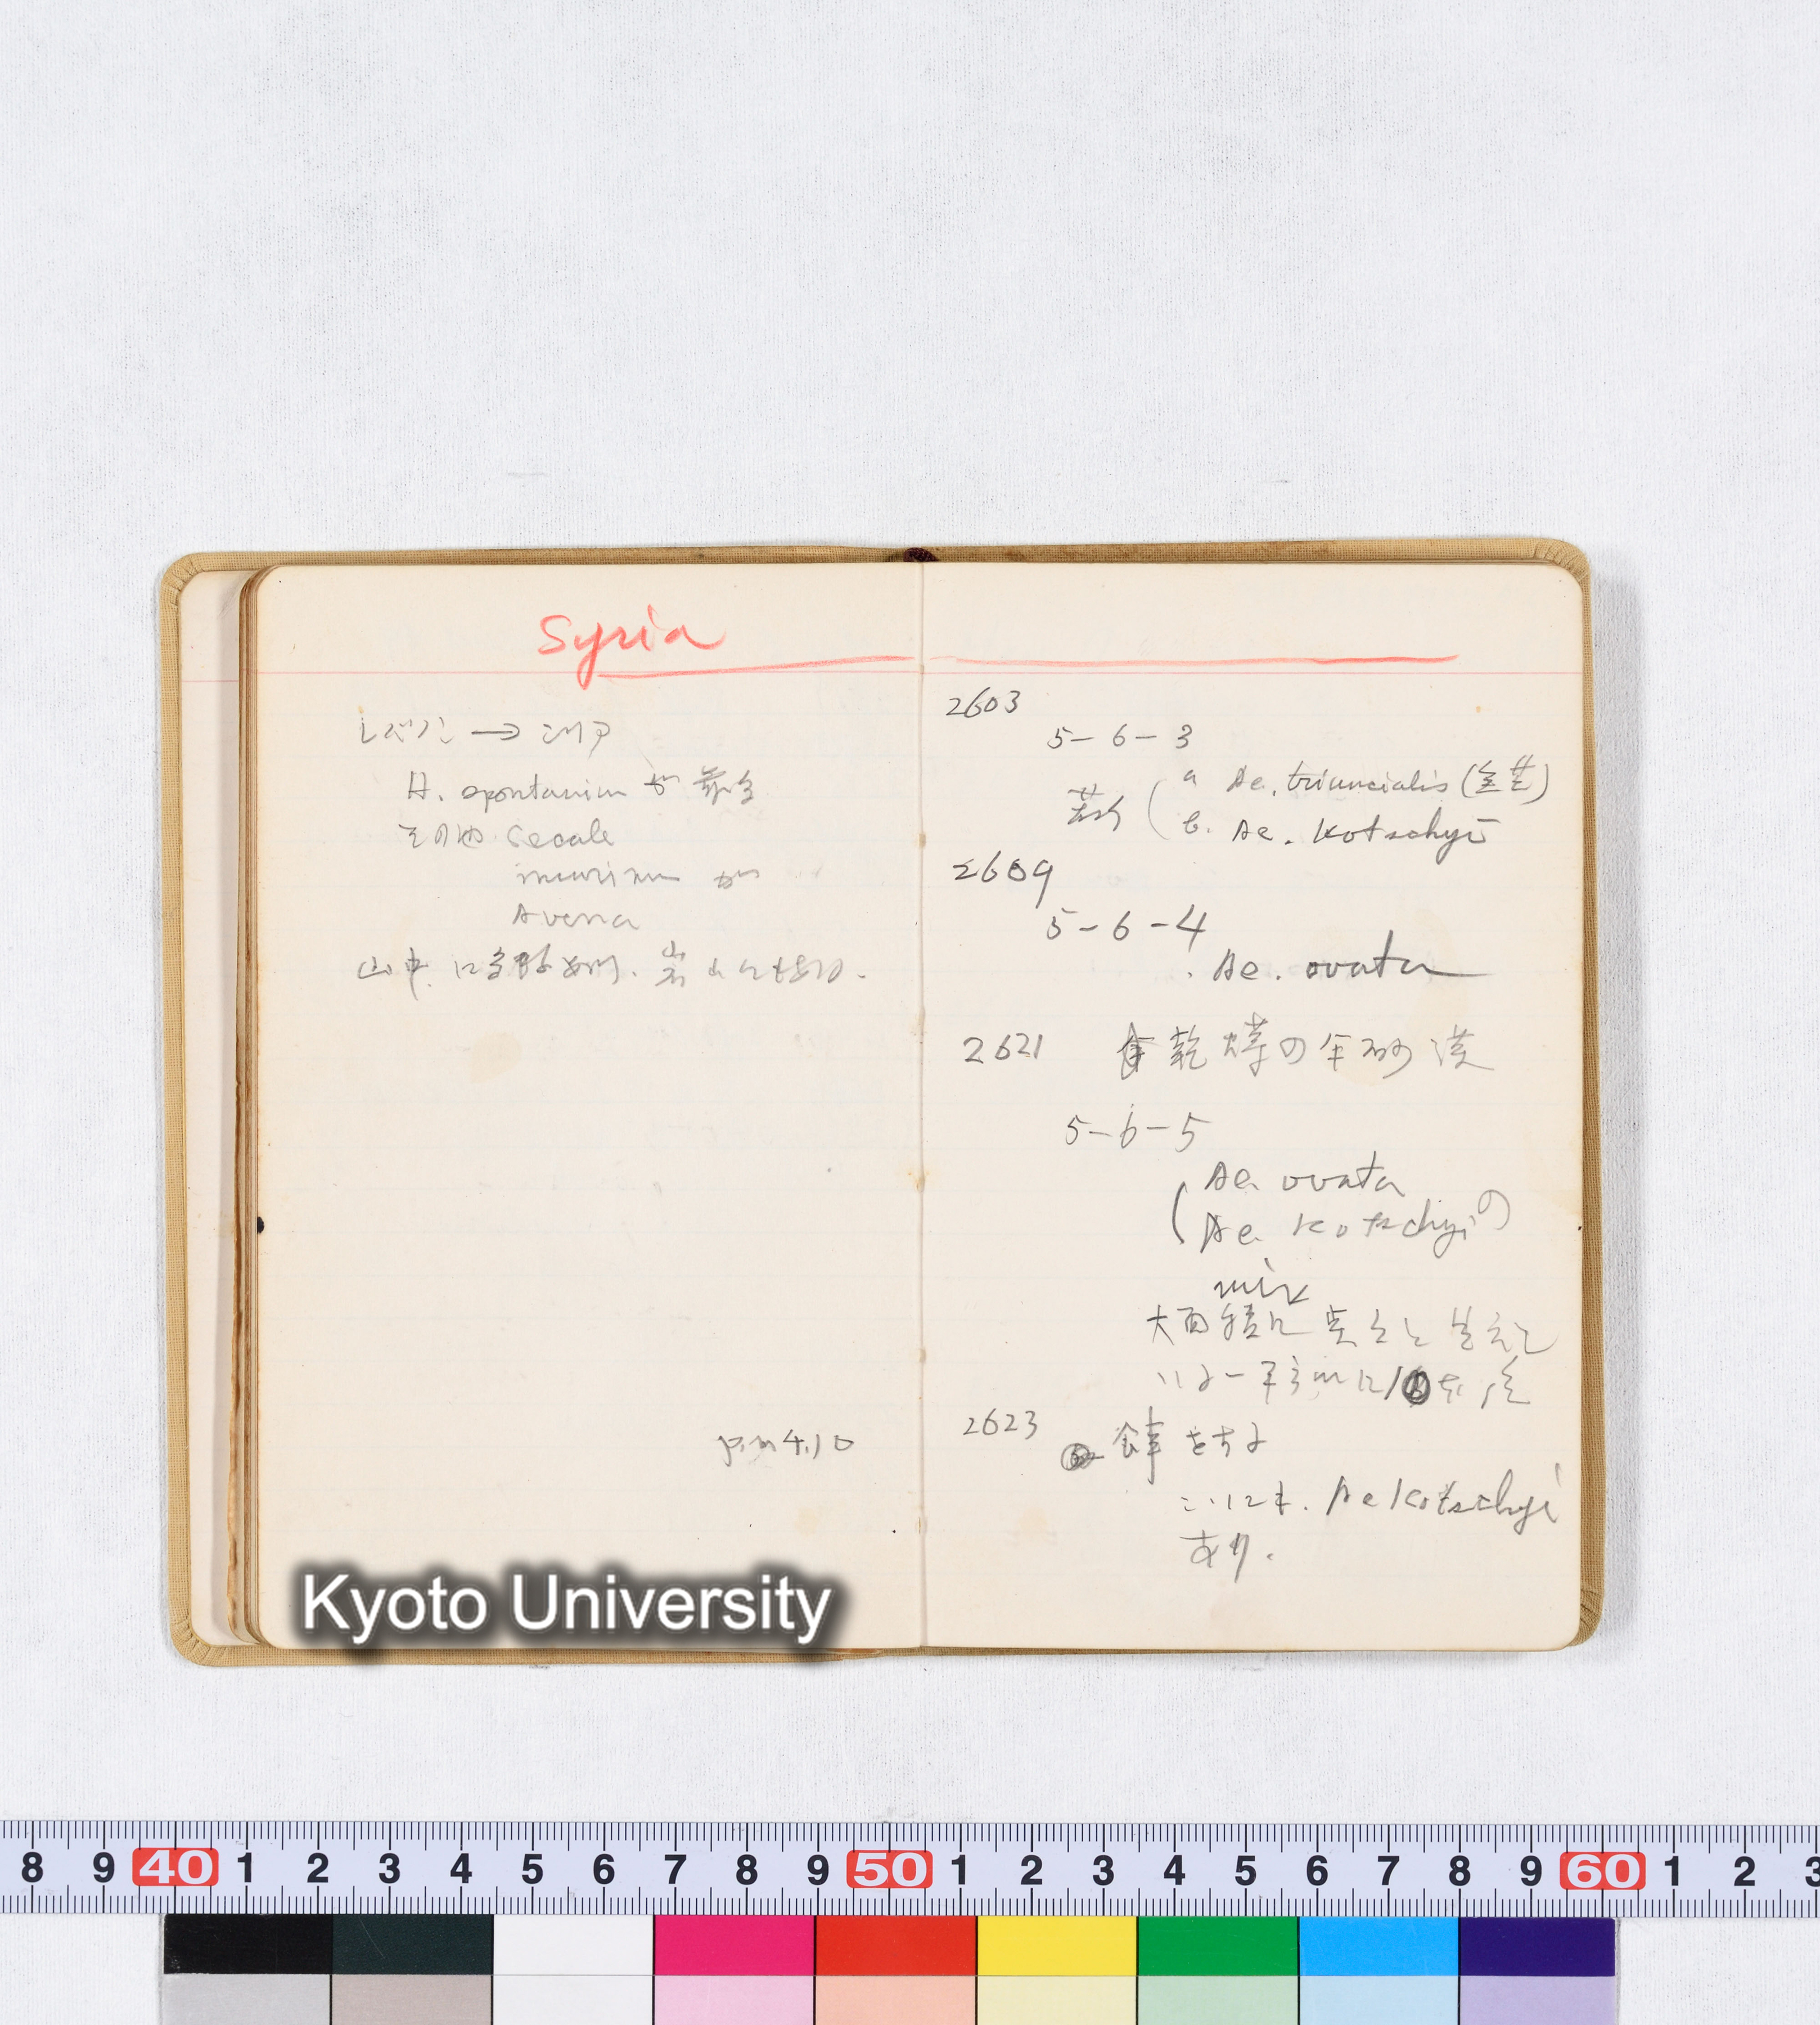 Syria
レバノン → シリア
H. spontanium が最多
その他 Secale
murinum が
Avena
山中に多数
p.m 4.10
2603
5-6-3
a Ae. triuncialis
b. Ae. Kotschyi
2609
5-6-4
Ae. ovata
2621 乾燥の半砂漠
5-6-5
Ae. ovata
Ae. Kotschyiの
mix
大面積に
2623 食事をする
こゝにも. Ae Kotschyi
あり.
Kyoto University
8 9 40 1 2 3 4 5 6 7 8 9 50 1 2 3 4 5 6 7 8 9 60 1 2 3